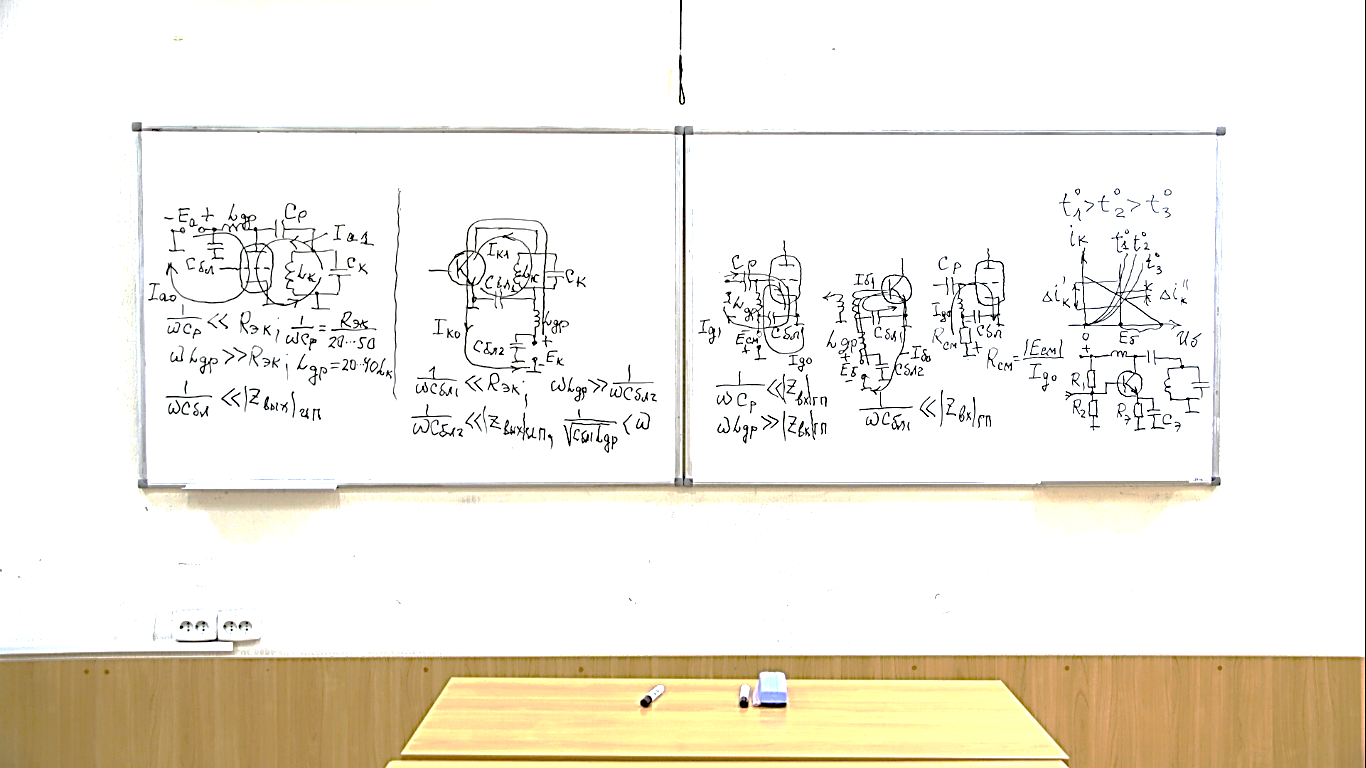 - Eа + Lдр Cр
Iа1
Cбл
Lк
Cк
Iао
1/ωCр << Rэк; 1/ωCр = Rэк/20...50
ωLдр >> Rэк; Lдр = 20...40Lк
1/ωCбл << |Zвых|ип
Iк1
Lк
Cк
Cбл1
Iко
Lдр
Cбл2
+
- Eк
1/ωCбл1 << Rэк; ωLдр >> 1/ωCбл2
1/ωCбл2 << |Zвых|ип, 1/√Cбл Lдр < ω
Cр
Lдр
Ig1
Cбл
Eсм
+
Igo
1/ωCр << |Zвх|гп
ωLдр >> |Zвх|гп
Iб1
Cбл1
Lдр
+
Eб
-
Iбо
Cбл2
1/ωCбл1 << |Zвх|гп
Cр
Igo
Cбл
Rсм
+
Rсм = |Eсм|/Igo
t°1 > t°2 > t°3
iк
t°1 t°2
t°3
Δiк' Δiк''
0 Eб Uб
+
R1
R2
Rэ
Cэ